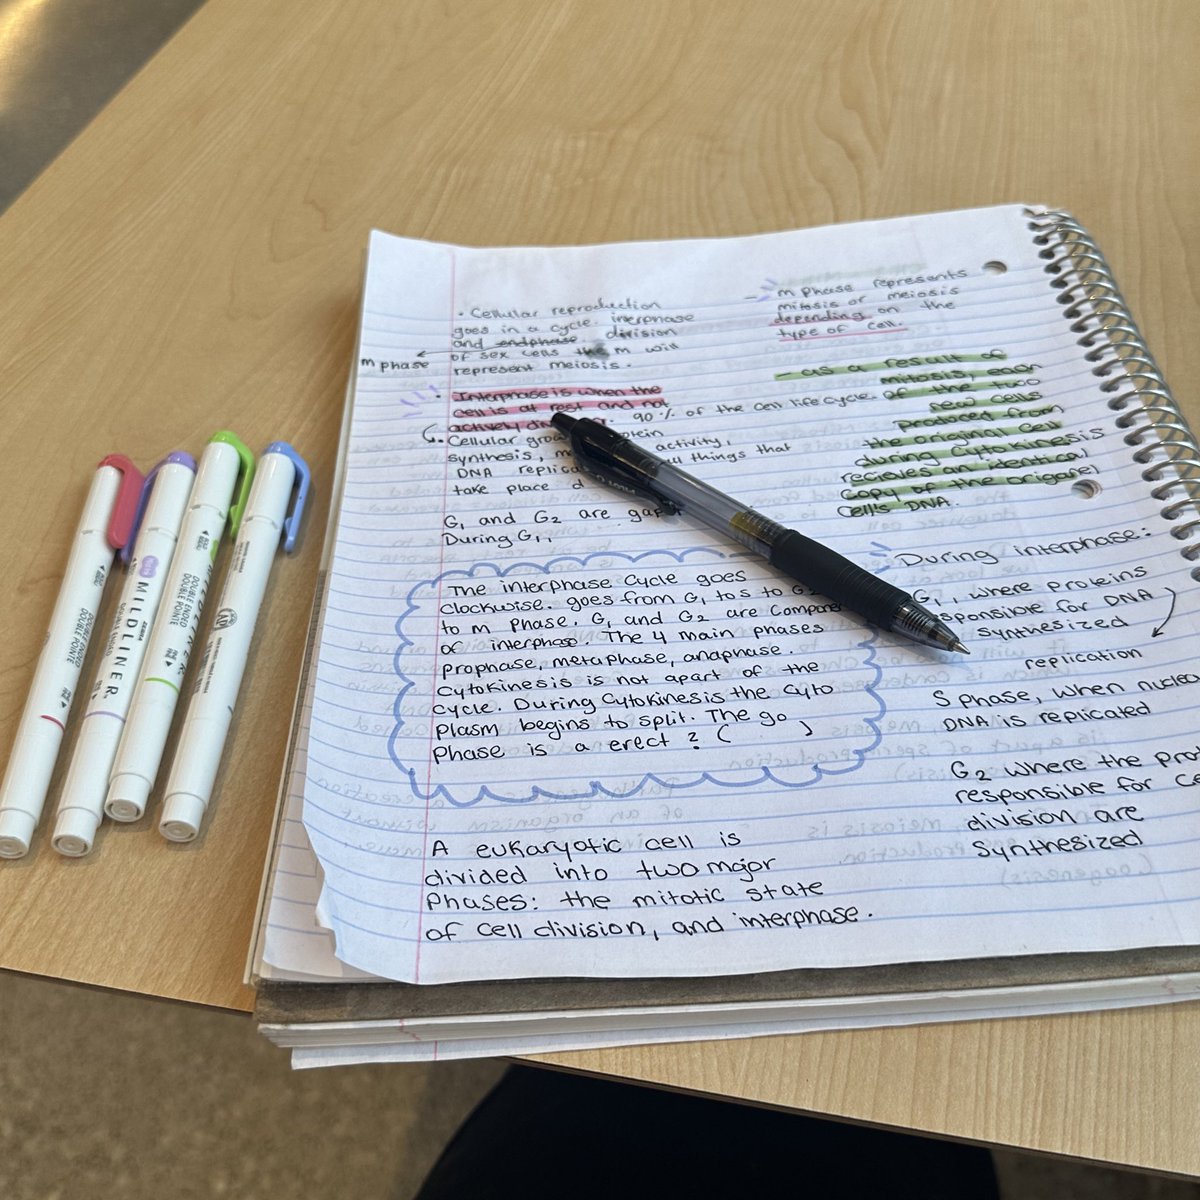 • Cellular reproduction
goes in a cycle. interphase
and endphase. division
of sex cells the m will
represent meiosis.
m phase
• Interphase is when the
cell is at rest and not
actively
90% of the cell life cycle.
Cellular
synthesis, activity,
DNA things that
take place
G₁ and G₂ are
During G₁,
The interphase cycle goes
clockwise. goes from G₁ to S to G₂
to m phase. G₁ and G₂ are
of interphas. The 4 main phases
prophase, metaphase, anaphase.
Cytokinesis is not apart of the
cycle. During Cytokinesis the cyto
plasm begins to split. The go
Phase is a erect ? ( )
A eukaryotic cell is
divided into two major
Phases: the mitotic state
of cell division, and interphase.
– m phase represents
mitosis or meiosis
depending on the
type of cell.
– as a result of
mitosis, each
of the two
new cells
produced from
the original cell
during cytokinesis
recieves an identical
copy of the origanel
Cell's DNA.
During interphase:
G₁, where proteins
for DNA
synthesized
replication
S phase, when
DNA is replicated
G₂ where the
responsible for
division are
synthesized
MILDLINER
DOUBLE ENDED
DOUBLE POINTE
DOUBLE ENDED
DOUBLE POINTE